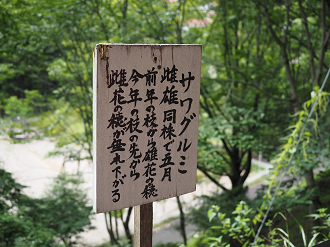 サワグルミ
雌雄同株で五月
前年の枝から雄花の穂
今年の枝の先から
雌花の穂が垂れ下がる